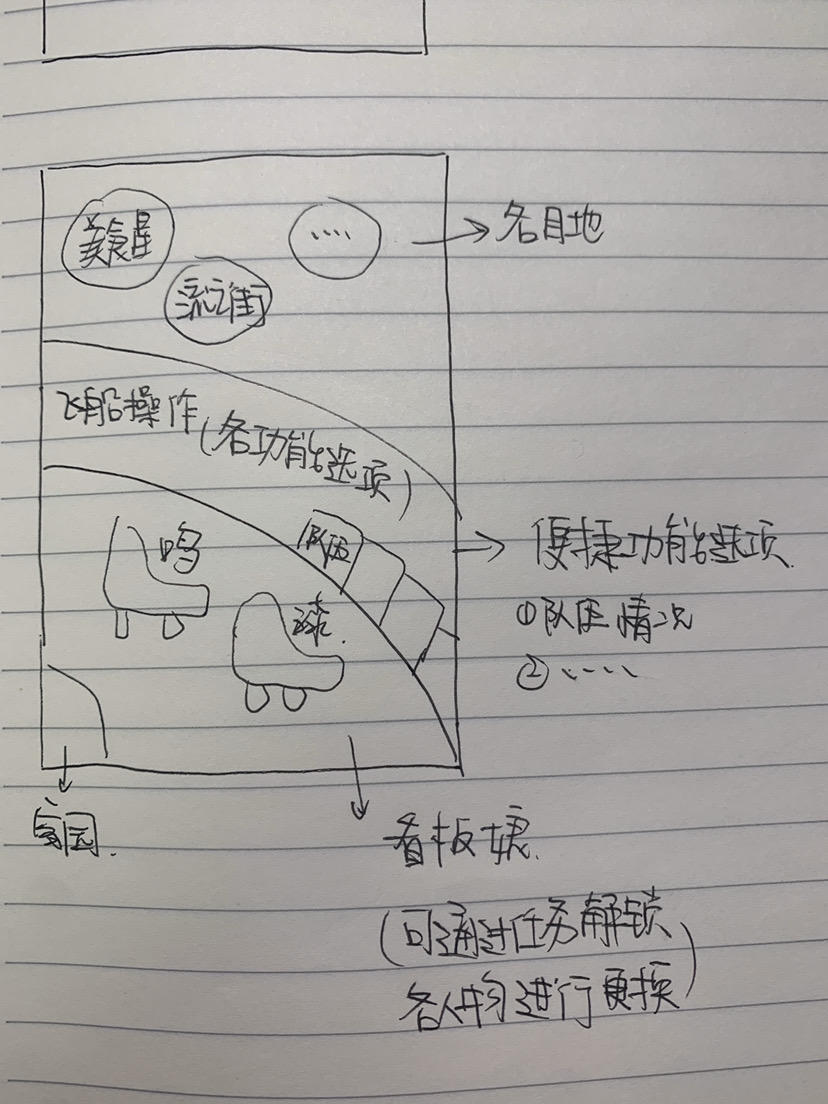 美食星
....
各目地
流云街
飞船操作
(各功能选项)
队伍
鸣
球.
便捷功能选项.
①队伍情况
②....
家园.
看板娘.
(可通过任务解锁
各人物进行更换)